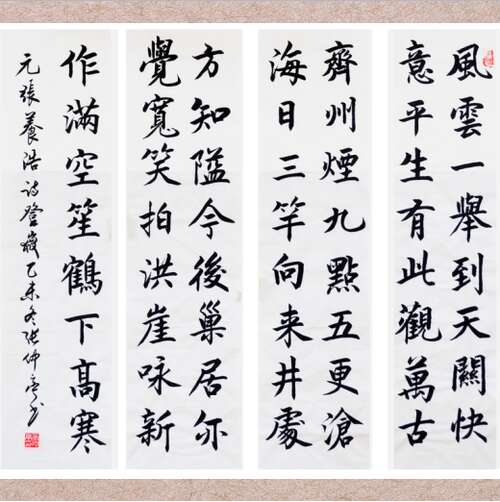 風雲一舉到天關快
意平生有此觀萬古
齊州煙九點五更滄
海日三竿向来井處
方知隘今後巢居亦
覺寬笑拍洪崖咏新
作滿空笙鶴下高寒
元張養浩诗登嶽乙未冬张仲亭书